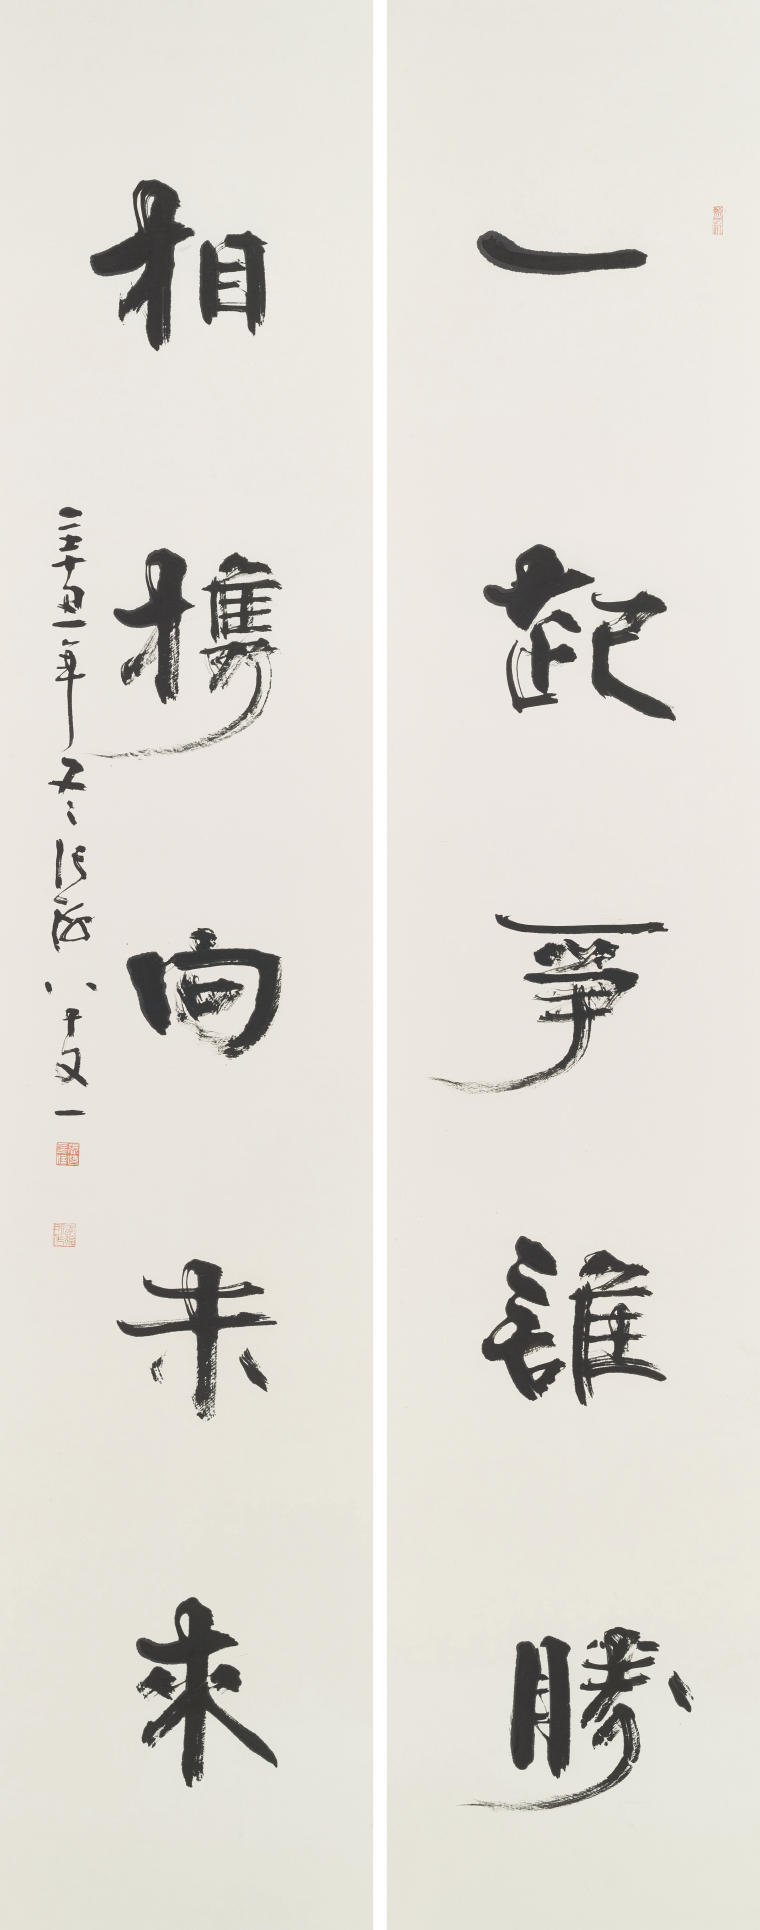 一起爭誰勝
相攜向未來
二千廿一年冬張海八十又一